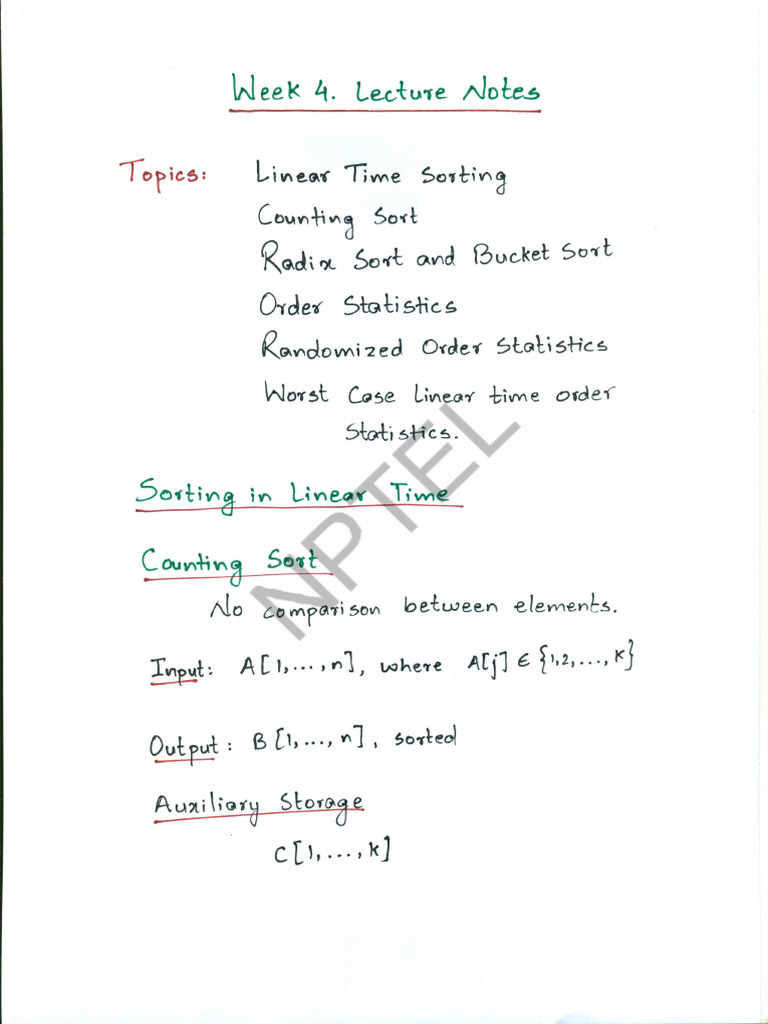 Week 4. Lecture Notes
Topics: Linear Time Sorting
Counting Sort
Radix Sort and Bucket Sort
Order Statistics
Randomized Order Statistics
Worst Case Linear time order
Statistics.
NPTEL
Sorting in Linear Time
Counting Sort
No comparison between elements.
Input: A[1,...,n], where A[j] ∈ {1,2,...,k}
Output: B[1,...,n], sorted
Auxiliary Storage
C[1,...,k]